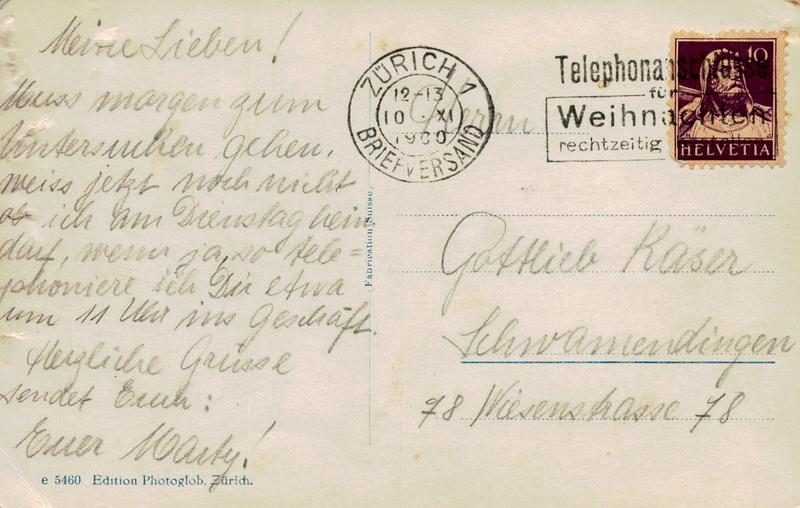 Meine Lieben!
Muss morgen zum
Untersuchen gehen,
weiss jetzt noch nicht
ob ich am Dienstag heim
darf, wenn ja, so tele=
phoniere ich Dir etwa
um 11 Uhr ins Geschäft.
Herzliche Grüsse
sendet Euch:
Euer Marty!
e 5460 Edition Photoglob, Zürich.
Fabrication Suisse
ZÜRICH 1
12-13
10. XI
BRIEFVERSAND
Telephonanschlüsse
für
Weihnachten
rechtzeitig
10
HELVETIA
Herrn
Gottlieb Käser
Schwamendingen
78 Wiesenstrasse 78